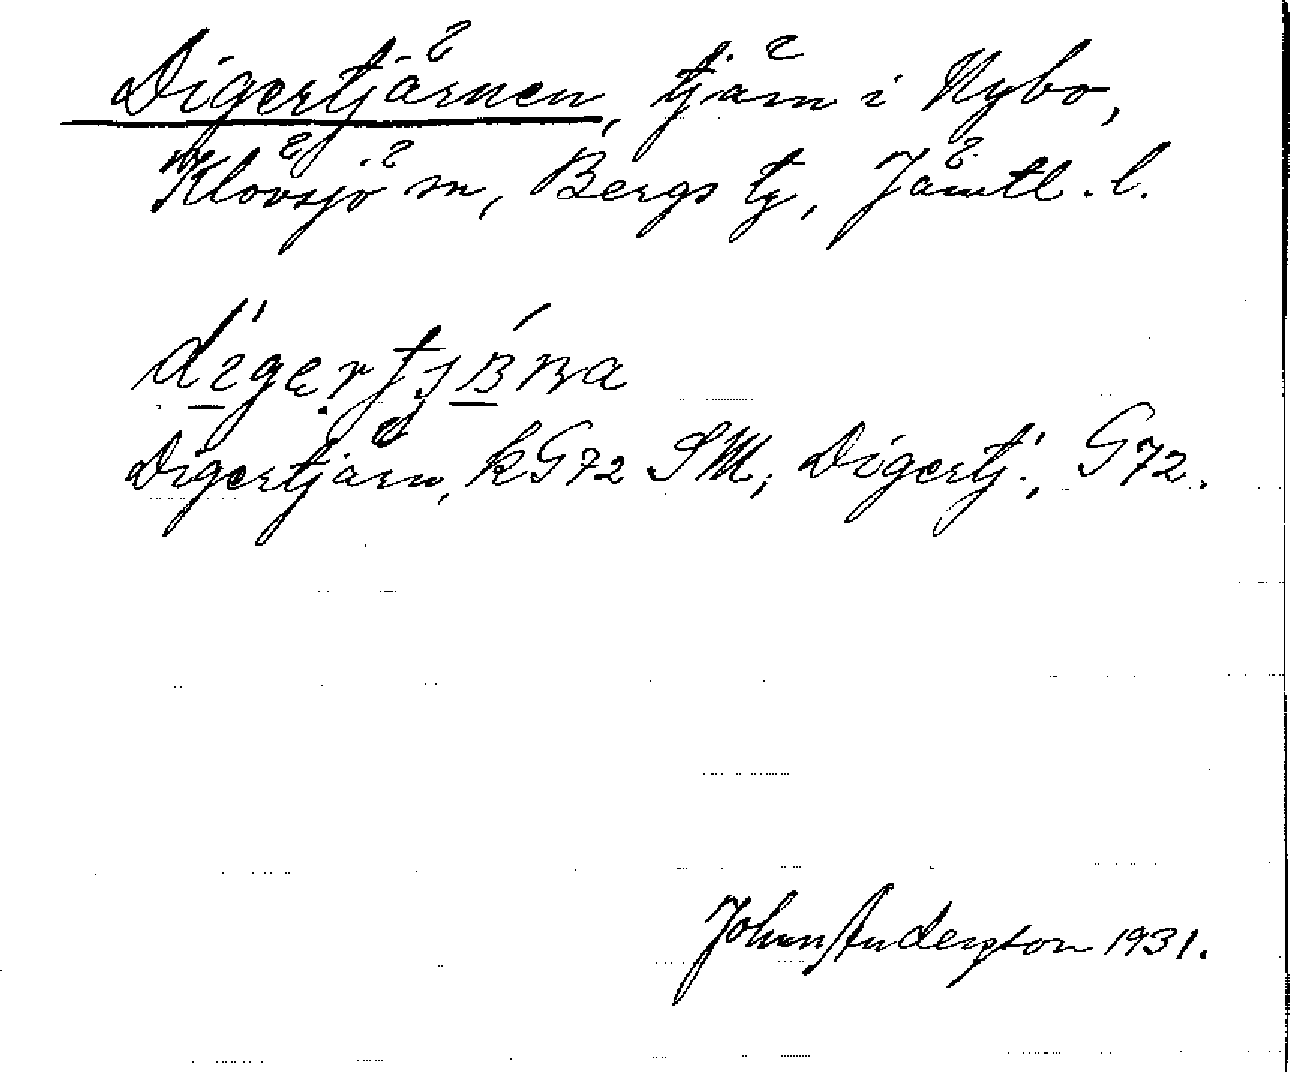 Digertjärnen, tjärn i Nybo,
Klövsjö sn, Bergs tg, Jämtl. l.
Digertjärn, kG72 SM; Digertj., G72.
Johan Anderson 1931.